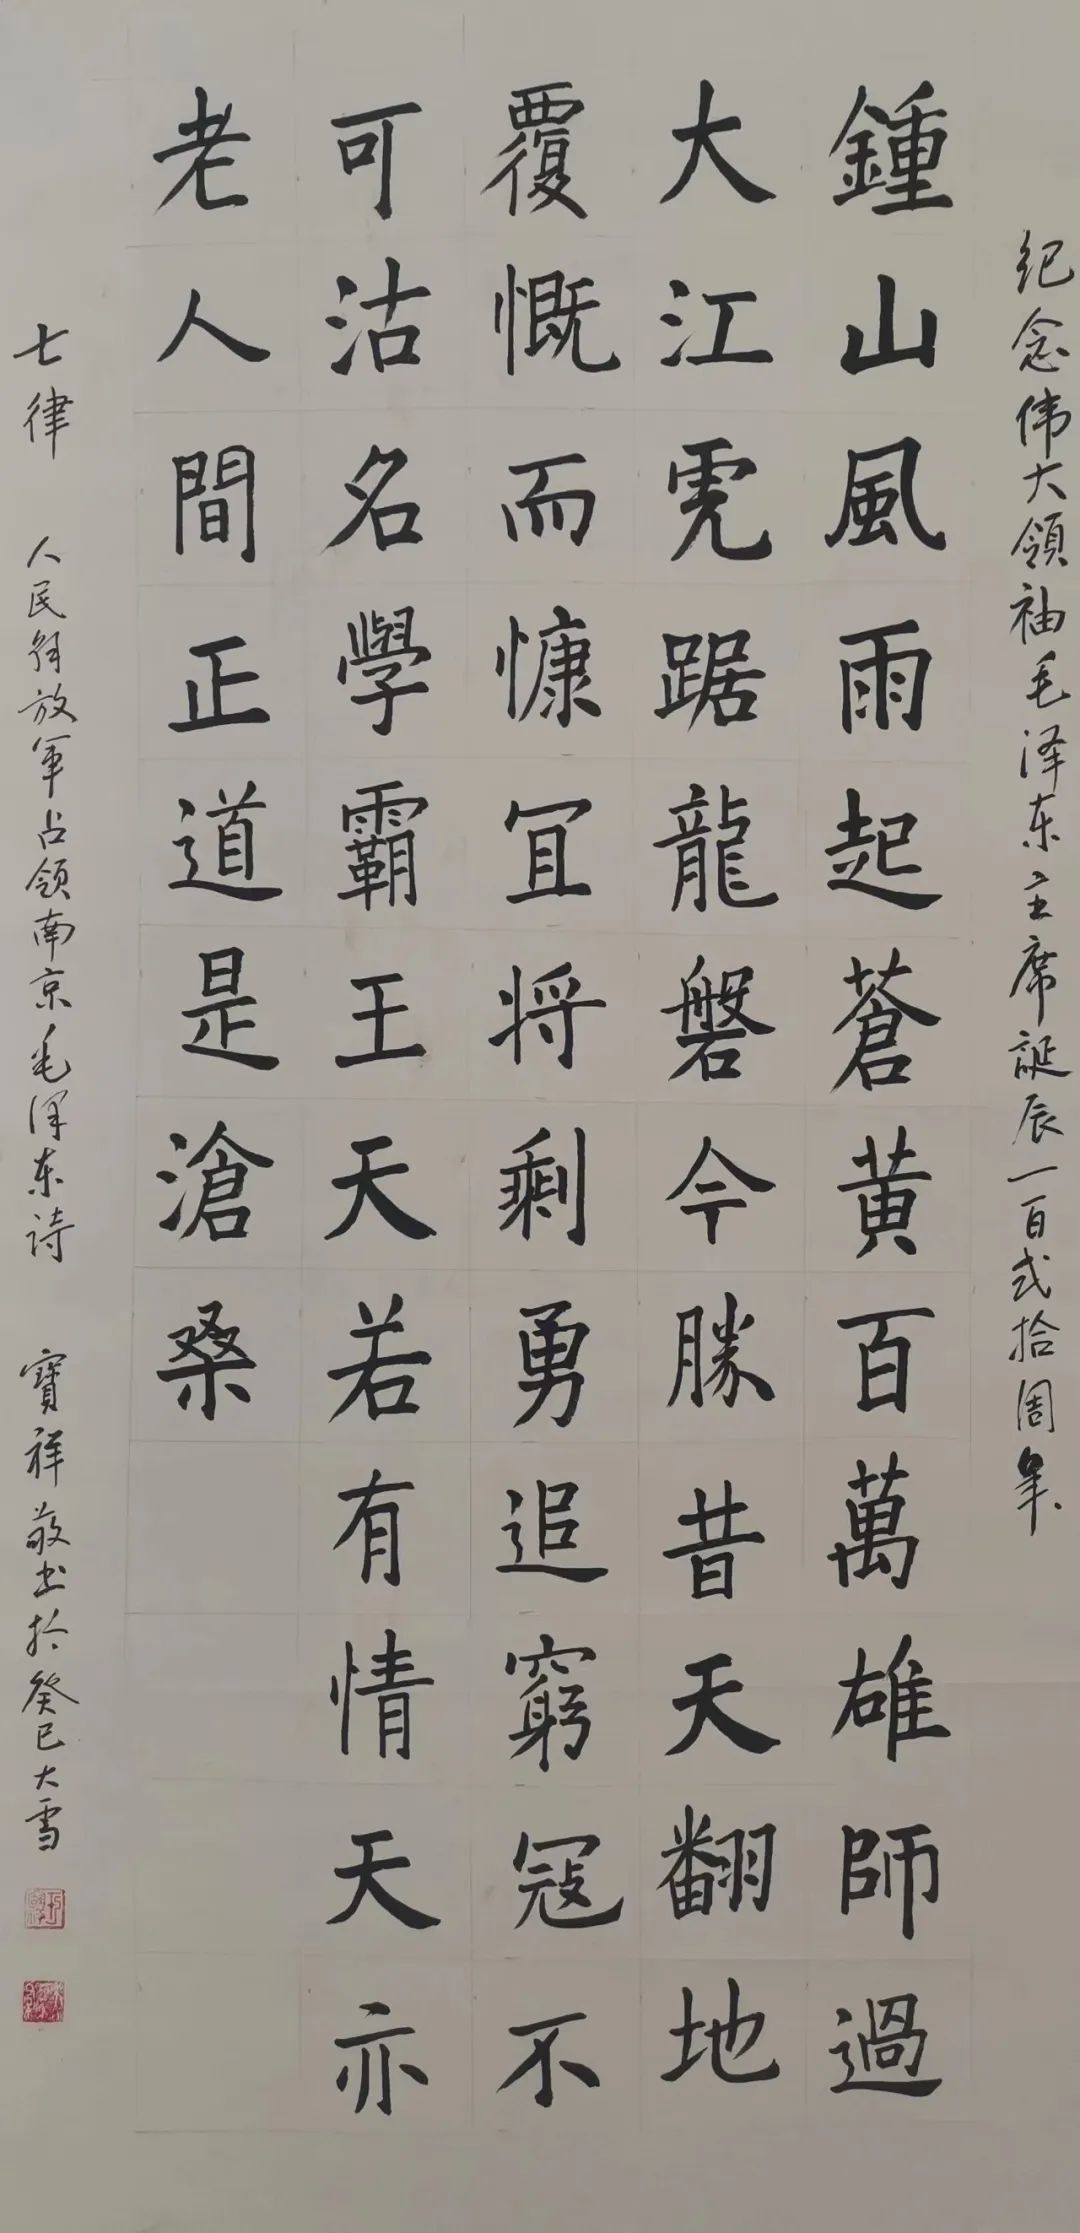 纪念伟大领袖毛泽东主席誕辰一百弍拾周年
鍾山風雨起蒼黄百萬雄師過
大江虎踞龍磐今勝昔天翻地
覆慨而慷宜将剩勇追窮寇不
可沽名學霸王天若有情天亦
老人間正道是滄桑
七律 人民解放军占领南京毛泽东诗 寳祥敬书於癸巳大雪